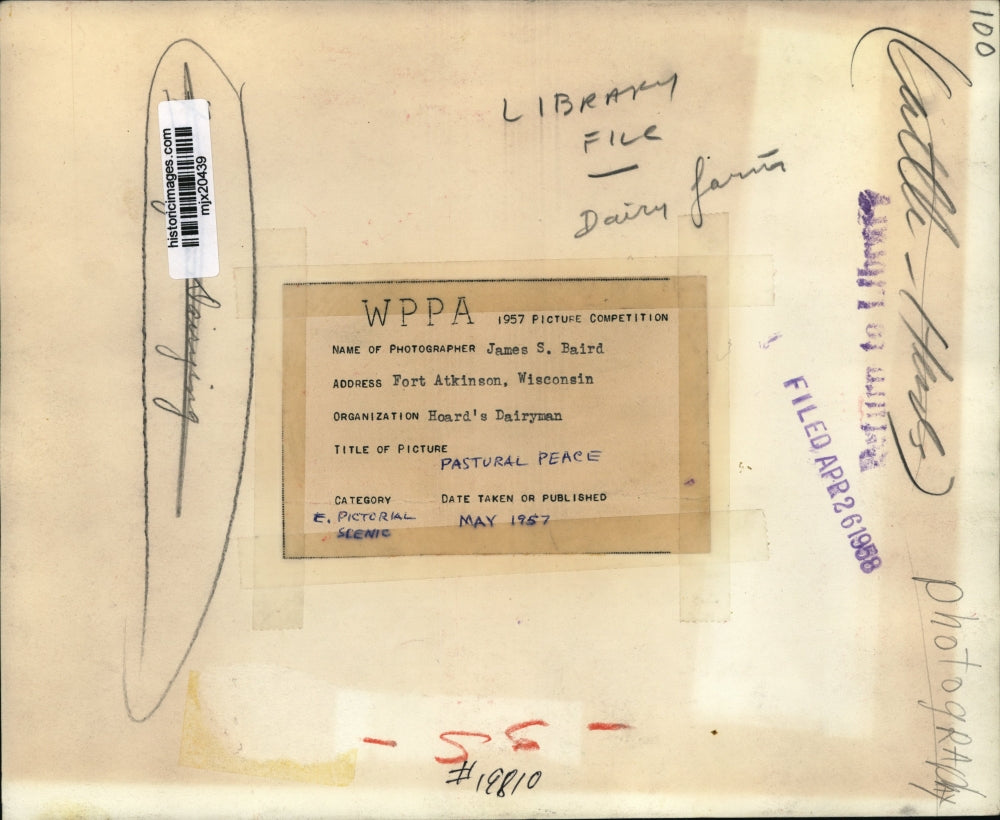 100
LIBRARY
FILE
—
Dairy farm
historicimages.com
mjx20439
WPPA 1957 PICTURE COMPETITION
NAME OF PHOTOGRAPHER James S. Baird
ADDRESS Fort Atkinson, Wisconsin
ORGANIZATION Hoard's Dairyman
TITLE OF PICTURE
PASTURAL PEACE
CATEGORY DATE TAKEN OR PUBLISHED
E. PICTORIAL MAY 1957
SCENIC
Return to Library
FILED APR 26 1958
Cattle -
photography
- 55 -
#19810